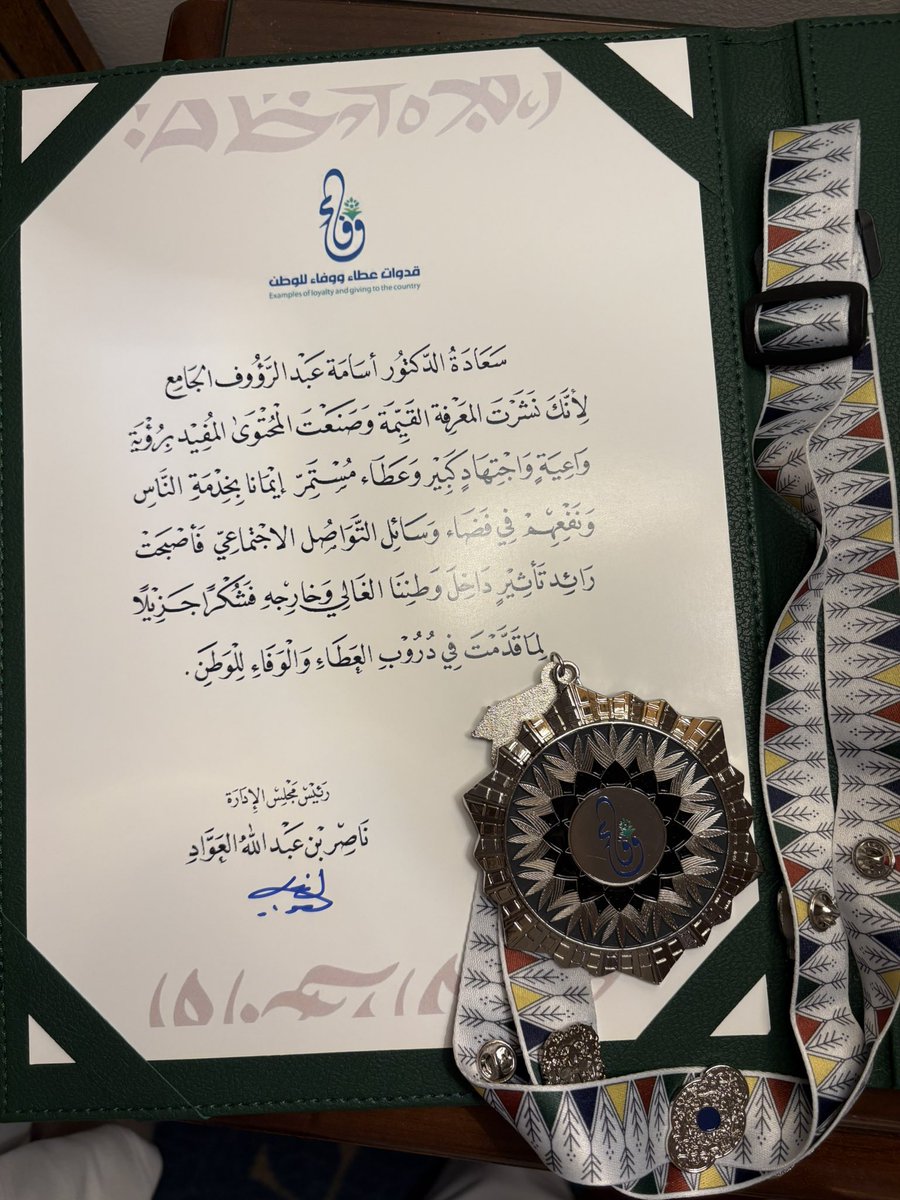 وفاء
قدوات عطاء ووفاء للوطن
Examples of loyalty and giving to the country
سَعَادَةُ الدَّكتُور أسَامَة عَبْد الرَّؤُوف الجَامِع
لِأَنَّكَ نَشَرْتَ المَعْرِفة القَيِّمَة وَصَنَعْتَ المُحْتَوَىٰ المُفِيْد بِرُؤْيَة
وَاعِيَةٍ وَاجْتِهَادٍ كَبِيْر وَعَطَاء مُسْتَمِرّ إيْمَانا بِخِدْمَةِ النَّاس
وَنَفْعِهِمْ فِي فَضَاء وَسَائِل التَّوَاصُل الاجْتِمَاعِيّ فَأصْبَحْتَ
رَائِد تَأثِيْرٍ دَاخِلَ وَطَنِنَا الغَالِي وَخَارِجِهِ فَشُكْرًا جَزِيْلًا
لِمَا قَدَّمْتَ فِي دُرُوْبِ العَطَاءِ وَالْوَفَاءِ لِلْوَطَنِ.
رَئِيْس مَجْلِس الإدَارَة
نَاصِر بْن عَبْد اللهُ العَوَّاد
وفاء